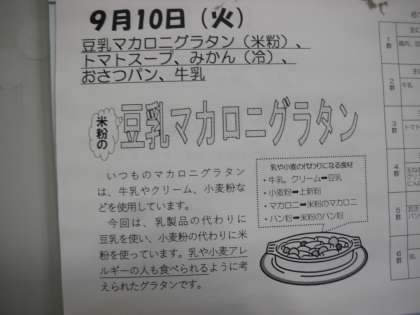 9月10日（火）
豆乳マカロニグラタン（米粉）、
トマトスープ、みかん（冷）、
おさつパン、牛乳
米粉の
豆乳マカロニグラタン
いつものマカロニグラタン
は、牛乳やクリーム、小麦粉な
どを使用しています。
今回は、乳製品の代わりに
豆乳を使い、小麦粉の代わりに米
粉を使っています。乳や小麦アレ
ルギーの人も食べられるように考
えられたグラタンです。
乳や小麦の代わりになる食材
・牛乳、クリーム➡豆乳
・小麦粉➡上新粉
・マカロニ➡米粉のマカロニ
・パン粉➡米粉のパン粉
1
数
2
数
3
数
4
数
5
数
6
数